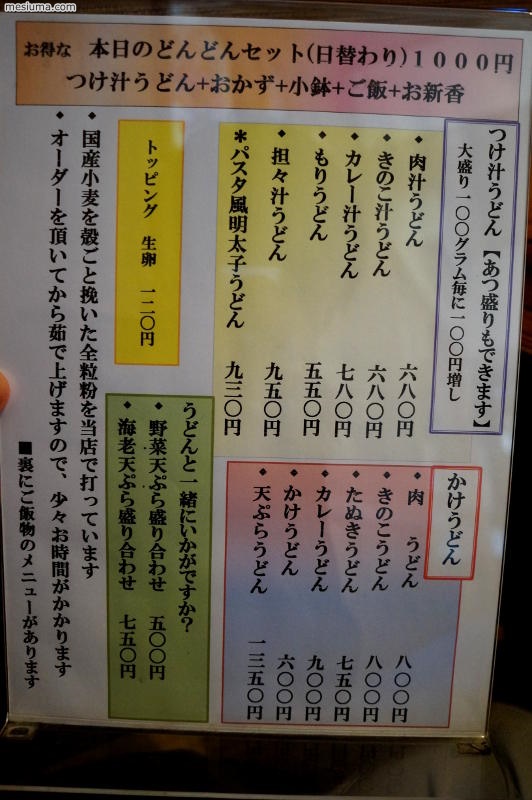 mesluma.com
お得な 本日のどんどんセット(日替わり)1000円
つけ汁うどん+おかず+小鉢+ご飯+お新香
つけ汁うどん【あつ盛りもできます】
大盛り一〇〇グラム毎に一〇〇円増し
◆ 肉汁うどん 六八〇円
◆ きのこ汁うどん 六八〇円
◆ カレー汁うどん 七八〇円
◆ もりうどん 五五〇円
◆ 担々汁うどん 九五〇円
*パスタ風明太子うどん 九三〇円
かけうどん
◆ 肉 うどん 八〇〇円
◆ きのこうどん 八〇〇円
◆ たぬきうどん 七五〇円
◆ カレーうどん 九〇〇円
◆ かけうどん 六〇〇円
◆ 天ぷらうどん 一三五〇円
トッピング 生卵 一二〇円
うどんと一緒にいかがですか?
◆ 野菜天ぷら盛り合わせ 五〇〇円
◆ 海老天ぷら盛り合わせ 七五〇円
◆ 国産小麦を殻ごと挽いた全粒粉を当店で打っています
◆ オーダーを頂いてから茹で上げますので、少々お時間がかかります
■裏にご飯物のメニューがあります